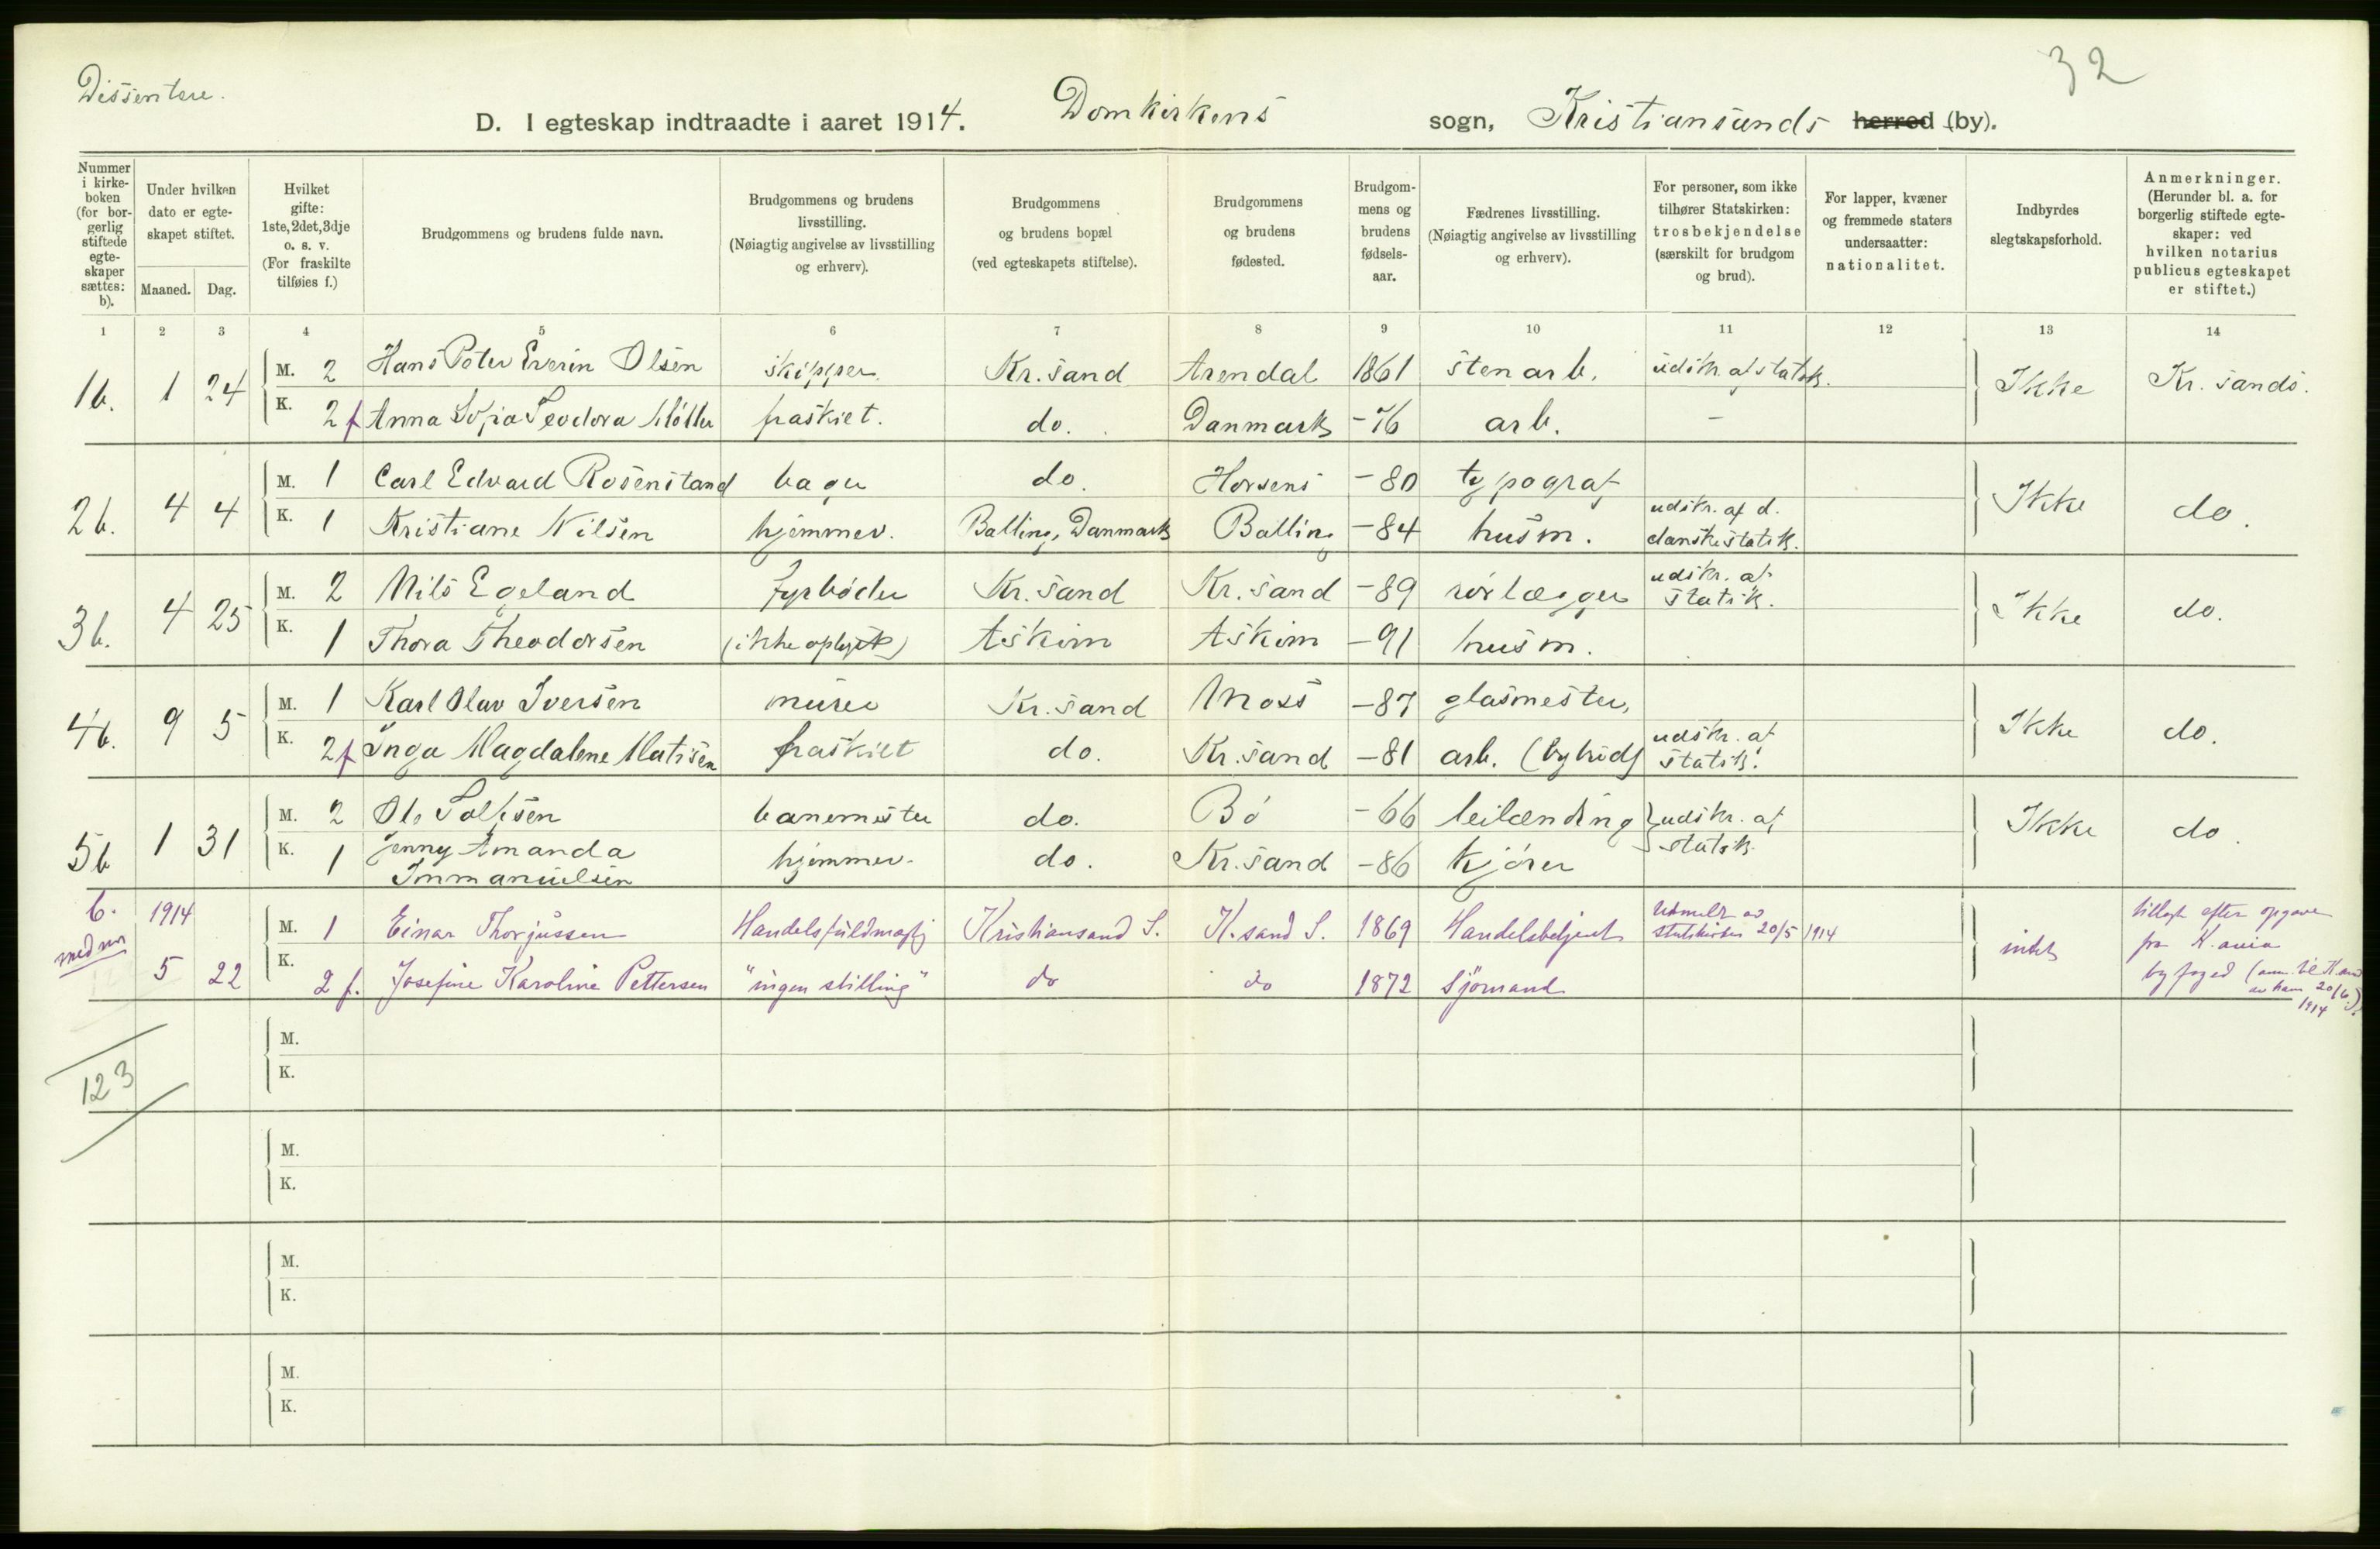 32
Dissentere.
D. I egteskap indtraadte i aaret 1914. Domkirkens sogn, Kristiansands herred (by).
Nummer i kirke-boken (for bor-gerlig stiftede egte-skaper sættes: b).
Under hvilken dato er egte-skapet stiftet.
Maaned. Dag.
Hvilket gifte: 1ste, 2det, 3dje o. s. v. (For fraskilte tilføies f.)
Brudgommens og brudens fulde navn.
Brudgommens og brudens livsstilling. (Nøiagtig angivelse av livsstilling og erhverv).
Brudgommens og brudens bopæl (ved egteskapets stiftelse).
Brudgommens og brudens fødested.
Brudgom-mens og brudens fødsels-aar.
Fædrenes livsstilling. (Nøiagtig angivelse av livsstilling og erhverv).
For personer, som ikke tilhører Statskirken: trosbekjendelse (særskilt for brudgom og brud).
For lapper, kvæner og fremmede staters undersaatter: nationalitet.
Indbyrdes slegtskapsforhold.
Anmerkninger. (Herunder bl. a. for borgerlig stiftede egte-skaper: ved hvilken notarius publicus egteskapet er stiftet.)
1 2 3 4 5 6 7 8 9 10 11 12 13 14
1b. 1 24 M. 2 Hans Peter Everin Olsen skipper. Kr.sand Arendal 1861 stenarb. udskr. af statsk. Ikke Kr. sands.
K. 2f Anna Sofia Teodora Møller fraskiet. do. Danmark -76 arb. -
2b. 4 4 M. 1 Carl Edvard Rosenstand bager do. Horsens -80 typograf Ikke do.
K. 1 Kristiane Nilsen hjemmev. Balling, Danmark Balling -84 husm. udskr. af d. danske statsk.
3b. 4 25 M. 2 Nils Egeland fyrbøder Kr.sand Kr.sand -89 rørlægger udskr. af statsk. Ikke do.
K. 1 Thora Theodorsen (ikke oplyst) Askim Askim -91 husm.
4b. 9 5 M. 1 Karl Olav Iversen murer Kr.sand Moss -87 glasmester, Ikke do.
K. 2f Inga Magdalene Matisen fraskilt do. Kr.sand -81 arb. (bybud) udskr. af statsk.
5b 1 31 M. 2 Ole Solfsen banemester do. Bø -66 leilænding udskr. af statsk. Ikke do.
K. 1 Jenny Amanda Immanuelsen hjemmev. do. Kr.sand -86 kjører
6. 1914 M. 1 Einar Thorjussen Handelsfuldmægtig Kristiansand S. K.sand S. 1869 Handelsbetjent Utmeldt av statskirken 20/5 1914 intet tillagt efter opgave
5 22 K. 2 f. Josefine Karoline Pettersen "ingen stilling" do do 1872 Sjömand fra K.ania byfoged av ham 20/6 1914
M.
K.
123
M.
K.
M.
K.
M.
K.